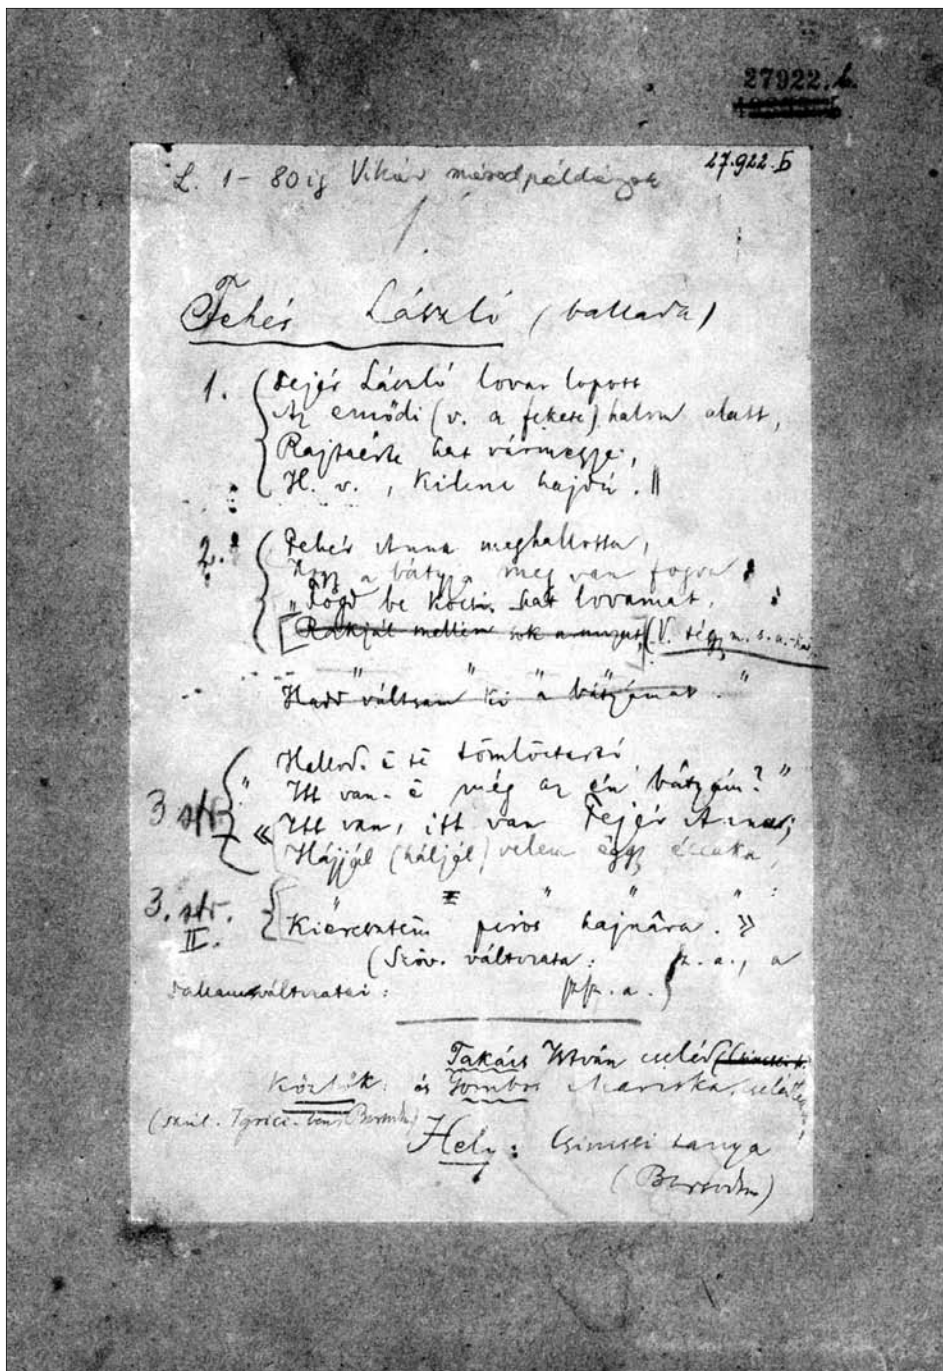 27922.b.
27.922.b
L. 1 – 80 ig Vikár másodpéldányok
1.
Fehér László (ballada)
1. Fejér László lovat lopott
Az emődi (v. a fekete) halom alatt,
Rajtaérte hat vármegye,
H. v., Kilenc hajdú. ||
2. Fehér Anna meghallotta,
Hogy a bátyja meg van fogva
„Fogd be kocsis hat lovamat,
Rakjál mellém sok aranyat, (V. tégy m. s. a.-kat
" " " " "
Hadd váltsam ki a bátyámat."
Hallod-ē tē tömlöctartó,
3 str. „Itt van-ē még az én bátyám?"
« Itt van, itt van Fejér Anna;
Hájjál (háljál) velem ëggy éccaka,
3. str. " " " " :
II. Kieresztem piros hajnâra. »
(Szöv. változata: sz. a., a
dallamváltozatai: szsz. a.)
Takács István cseléd
Közlők: és Gombos Mariska, cseléd
(szül. Igrici-ben, Borsodm)
Hely: Csincsei tanya
(Borsodm)